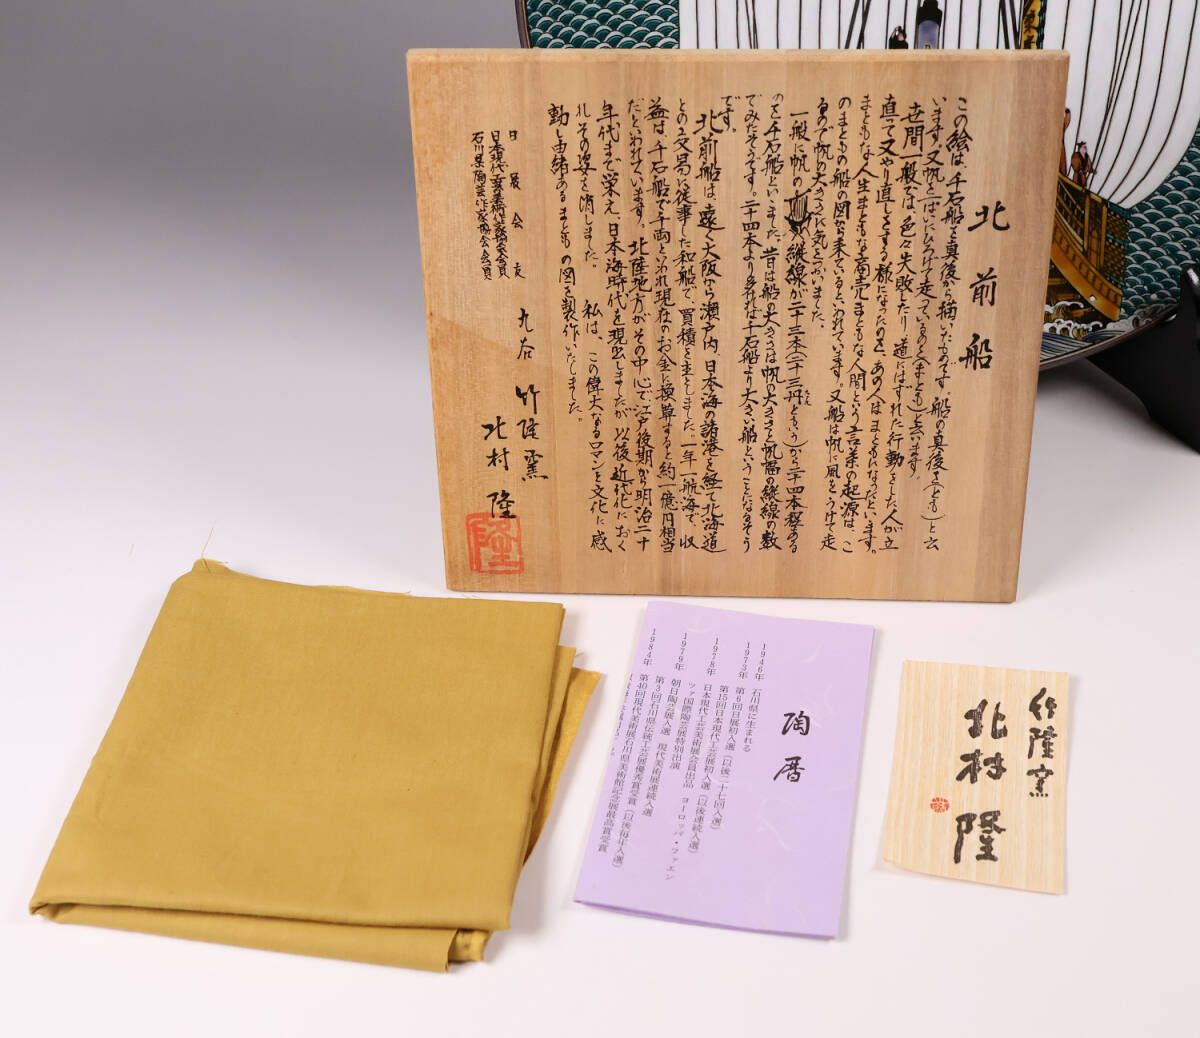 北前船
この絵は、千石船を真後から描いたものです。船の真後を(とも)と云
います。又帆を一ぱいにひろげて走っているのを(まとも)と云います。
世間一般では、色々失敗したり道にはずれた行動をした人が立
直って又やり直しをする様になったのを、あの人はまともになったといいます。
まともな人生まともな商売まともな人間という言葉の起源は、こ
のまともの船の図から来ているといわれています。又船は帆に風をうけて走
るので帆の大きさに気をつかいました。
一般に帆の縦線が二十三本(二十三丹ともいう)から二十四本程ある
のを千石船といいました。昔は船の大きさは帆の大きさと帆幅の縦線の数
でみたそうです。二十四本より多ければ千石船より大きい船ということになるそう
です。
北前船は、遠く大阪から瀬戸内、日本海の諸港を経て北海道
との交易に従事した和船で、買積を主としました。一年一航海で、収
益は、千石船で千両といわれ現在のお金に換算すると約一億円相当
だといわれています。北陸地方がその中心で江戸後期から明治二十
年代まで栄え、日本海時代を現出しましたが以後近代化におく
れその姿を消しました。 私は、この偉大なるロマンと文化に感
動し由緒あるまともの図を製作いたしました。
日展会友
日本現代工芸美術作家協会会員
石川県陶芸作家協会会員
九谷 竹隆窯
北村 隆
隆
陶暦
1946年 石川県に生まれる
1973年 第6回日展初入選(以後二十七回入選)
第15回日本現代工芸展初入選(以後連続入選)
1978年 日本現代工芸美術展会員出品 ヨーロッパ・ファエン
ツァ国際陶芸展特別出演
1979年 朝日陶芸展入選 現代美術展連続入選
第3回石川県伝統工芸展優秀賞受賞(以後毎年入選)
1984年 第40回現代美術展石川県美術館記念展最高賞受賞
竹隆窯
北村隆